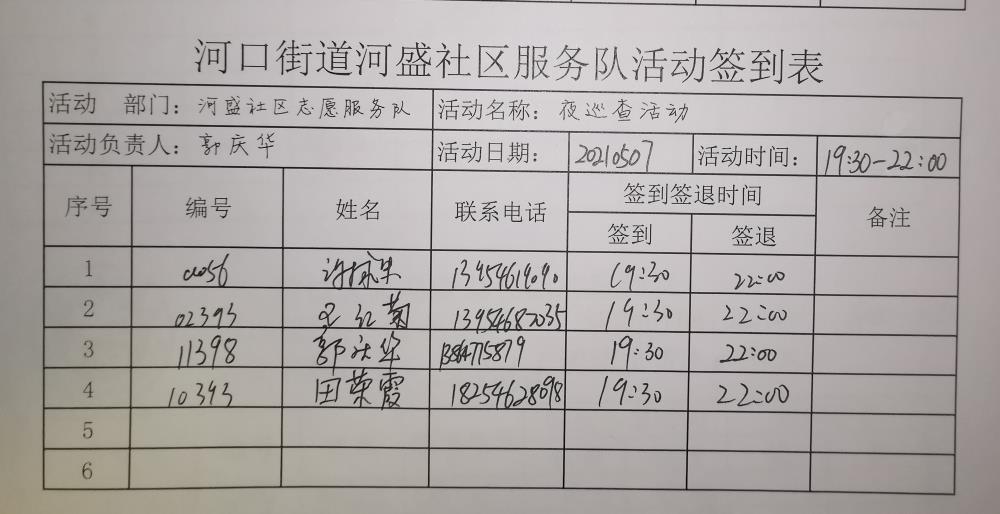 河口街道河盛社区服务队活动签到表
活动 部门：河盛社区志愿服务队 活动名称：夜巡查活动
活动负责人：郭庆华 活动日期：20210507 活动时间：19:30-22:00
序号 编号 姓名 联系电话 签到签退时间 备注
签到 签退
1 19:30 22:00
2 02393 红菊 13954687035 19:30 22:00
3 11398 郭庆华 19:30 22:00
4 10393 田荣霞 18254628098 19:30 22:00
5
6